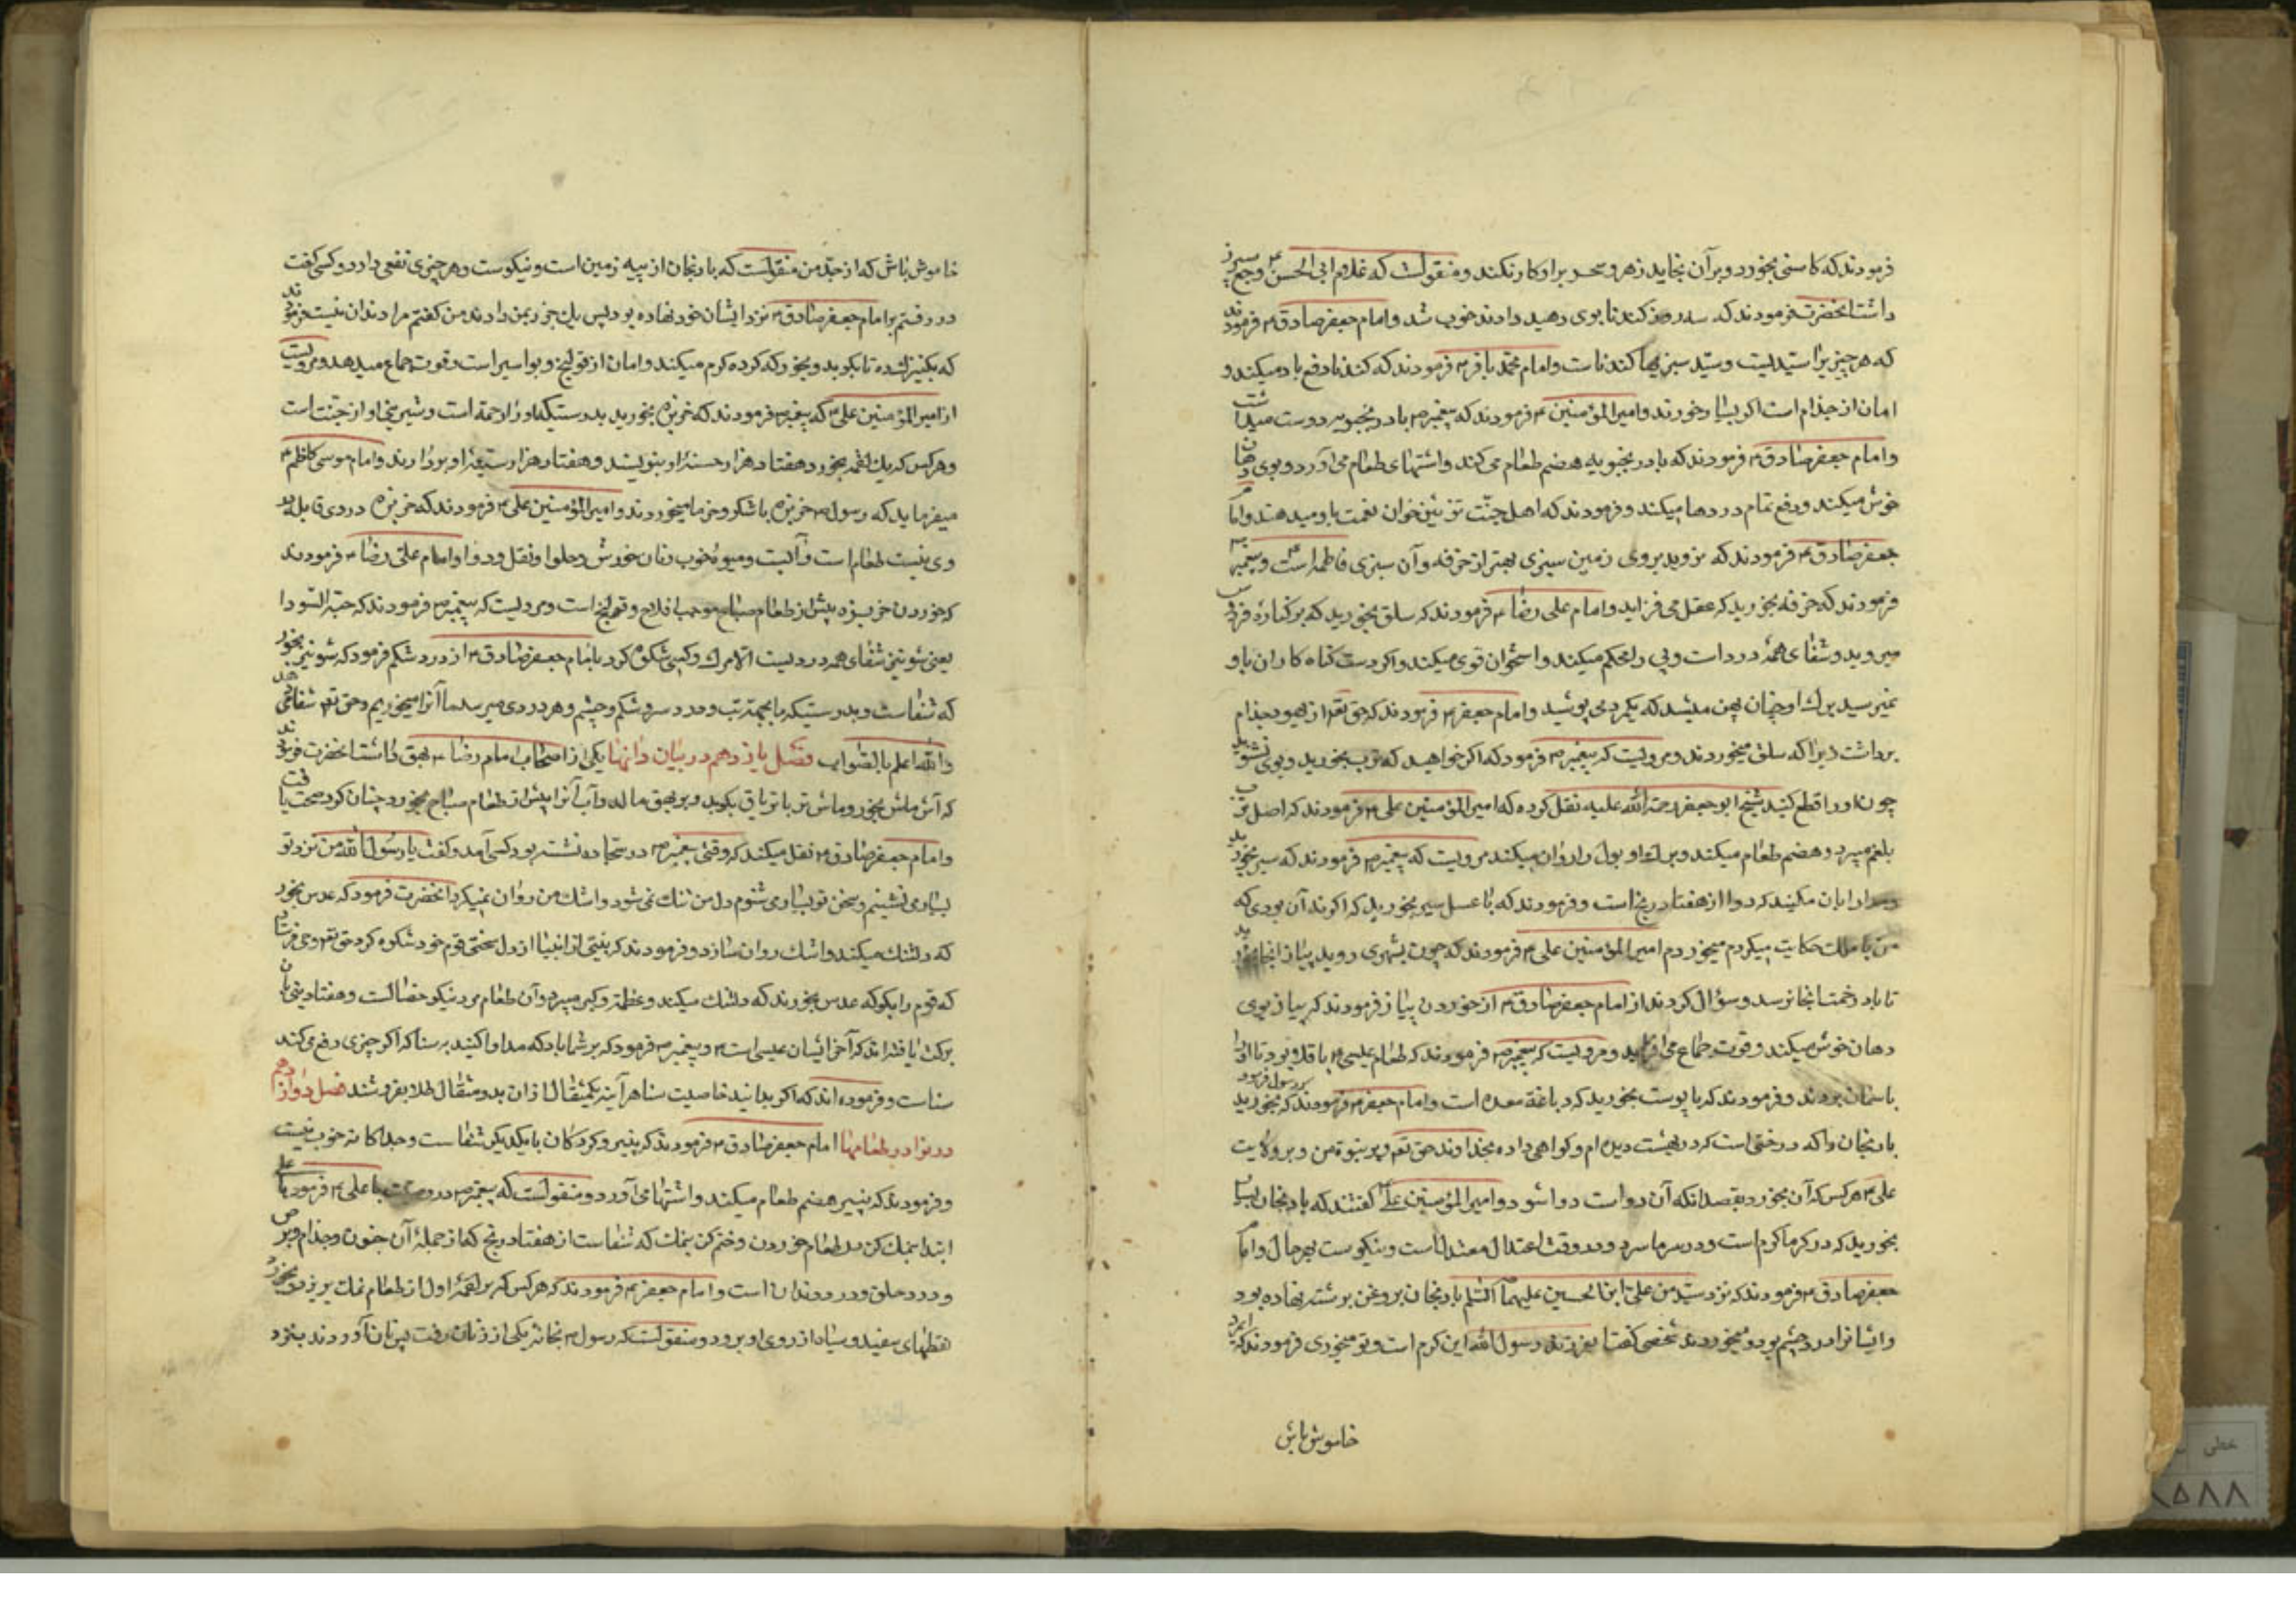 فرمودند که کاسنی بخورد و بر آن بخابد زهر و سحر بر او کار نکند و منقولست که غلام ابی الحسن ع وجع سپرز
داشت انحضرت فرمودند که سه روز کندنا بوی دهید دادند خوب شد و امام جعفر صادق ع فرمودند
که هر چیزیرا سیدیست و سید سبزیها کندناست و امام محمد باقر ع فرمودند که کندنا دفع باد میکند و
امان از جذام است اگر بسیار خورند و امیرالمؤمنین ع فرمودند که پیغمبر ص بادرنجبویه دوست میداشت
و امام جعفر صادق ع فرمودند که بادرنجبویه هضم طعام می کند و اشتهای طعام می آورد و بوی دهان
خوش میکند و دفع تمام دردها میکند و فرمودند که اهل جنت تزئین خوان نعمت باو میدهند و امام
جعفر صادق ع فرمودند که نروید بروی زمین سبزی بهتر از خرفه و آن سبزی فاطمه است ع و پیغمبر ص
فرمودند که خرفه بخورید که عقل می فزاید و امام علی رضا ع فرمودند که سلق بخورید که بر کناره فردوس
میروید و شفای همهٔ درد است و پی را محکم میکند و استخوان قوی میکند و اگر دست گناه کاران باو
نمیرسید برگ او چنان پهن میشد که یکمرد می پوشید و امام جعفر ع فرمودند که حق تعم از یهود جذام
برداشت زیرا که سلق میخوردند و مرویست که پیغمبر ص فرمود که اگر خواهید که ترب بخورید و بوی نشنوید
چون او را قطع کنید شیخ ابو جعفر رحمة الله علیه نقل کرده که امیرالمؤمنین علی ع فرمودند که اصل ترب
بلغم میبرد و هضم طعام میکند و برگ او بول را روان میکند مرویست که پیغمبر ص فرمودند که سیر بخورید
و مدارا بان مکنید که دوا از هفتاد رنج است و فرمودند که با عسل سیر بخورید که اگر نه آن بودی که
من با ملک حکایت میکردم میخوردم امیرالمؤمنین علی ع فرمودند که چون بشهری روید پیاز انجا بخورید
تا باد و خمت انجا نرسد و سؤال کردند از امام جعفر صادق ع از خوردن پیاز فرمودند که پیاز بوی
دهان خوش میکند و قوت جماع می افزاید و مرویست که پیغمبر ص فرمودند که طعام عیسی ع باقلا بود تا او را
باسمان بردند و فرمودند که با پوست بخورید که دباغة معده است و امام جعفر ع فرمودند که رسول فرمود بخورید
بادنجان را که درختی است که در بهشت دیده ام و گواهی داده بخداوند حق تعم و بر نبوة من و بر ولایت
علی ع هر کس که آن بخورد بقصد انکه آن دواست دوا شود و امیرالمؤمنین علی ع گفتند که بادنجان بسیار
بخورید که در گرما گرم است و در سرما سرد و در وقت اعتدال معتدل است و نیکوست بهر حال و امام
جعفر صادق ع فرمودند که نزد سید من علی ابن الحسین علیهما السلم بادنجان بروغن برشته نهاده بود
و ایشانرا درد چشم بود و میخوردند شخصی گفت یا فرزند رسول الله این گرم است و تو میخوری فرمودند که
خاموش باش
خاموش باش که از جد من منقولست که بادنجان از پیه زمین است و نیکوست و هر چیزی نفعی دارد و کسی گفت
در رفتم بر امام جعفر صادق ع نزد ایشان خود نهاده بود پس یک جزو بمن دادند من گفتم مرا دندان نیست فرمودند
که بکنیزک ده تا بکوبد و بخور که گرده گرم میکند و امان از قولنج و بواسیر است و قوت جماع میدهد و مرویست
از امیرالمؤمنین علی ع که پیغمبر ص فرمودند که خربزه بخورید بدرستیکه او را رحمة است و شیرینی او از جنت است
و هر کس که یک لقمه بخورد هفتاد هزار حسنه او بنویسند و هفتاد هزار سیئهٔ او بردارند و امام موسی کاظم ع
میفرماید که رسول ص خربزه با شکر و خرما میخوردند و امیرالمؤمنین علی ع فرمودند که خربزه دروی قابله بد
وی نیست طعام است و آبست و میوهٔ خوب و نان خورش و حلوا و نقل و دوا و امام علی رضا ع فرمودند
که خوردن خربزه پیش از طعام صباح موجب افلاج و قولنج است و مرویست که پیغمبر ص فرمودند که حبة السودا
یعنی شونیز شفای همه دردیست الا مرگ و کسی شکوه کرد با امام جعفر صادق ع از درد شکم فرمود که شونیز بخور
که شفاست و بدرستیکه ما بجهة تب و درد سر و شکم و چشم و هر دردی میرسد ما آنرا میخوریم و حق تعم شفا میدهد
والله اعلم بالصواب فصل یازدهم در بیان دانها یکی از اصحاب امام رضا ع بهق داشت انحضرت فرمودند
که آش ماش بخور و ماش تر با تریاق بکوبد و بر بهق مالد و آب آنرا پیش از طعام صباح بخورد چنان کرد صحت یافت
و امام جعفر صادق ع نقل میکند که وقتی پیغمبر ص در سجاده نشسته بود کسی آمد و گفت یا رسول الله من نزد تو
بسیار می نشینم و سخن تو بسیار می شنوم دل من تنک نمی شود و اشک من روان نمیگردد انحضرت فرمود که عدس بخور
که دلتنک میکند و اشک روان سازد و فرمودند که نبیی از انبیا از دل سختی قوم خود شکوه کرد حق تعم وحی فرستاد
که قوم را بگو که عدس بخورند که دلتنک میکند و عظمة و کبر میبرد و آن طعام مرد نیکو خصالست و هفتاد نبی بآن
برکت یافته اند که آخر ایشان عیسی است ع و پیغمبر ص فرمود که بر شما باد که مداوا کنید بر سنا که اگر چیزی دفع می کند
سناست و فرموده اند که اگر بدانید خاصیت سنا هر آینه یکمثقال از ان بدو مثقال طلا بفروشند فصل دوازدهم
در نوادر طعامها امام جعفر صادق ع فرمودند که پنیر و گردکان با یکدیگر شفاست و جداگانه خوب نیست
و فرمودند که پنیر هضم طعام میکند و اشتها می آورد و منقولست که پیغمبر ص در وصیت با علی ع فرمود یا علی
ابتدا بنمک کن در طعام خوردن و ختم کن بنمک که شفاست از هفتاد رنج که از جملهٔ آن جنون و جذام و برص
و درد حلق و درد دندان است و امام جعفر ع فرمودند که هر کس که بر لقمهٔ اول از طعام نمک بریزد و بخورد
نقطهای سفید و سیاه از روی او برود و منقولست که رسول ص بخانه یکی از زنان رفت پس نان آوردند بنزد